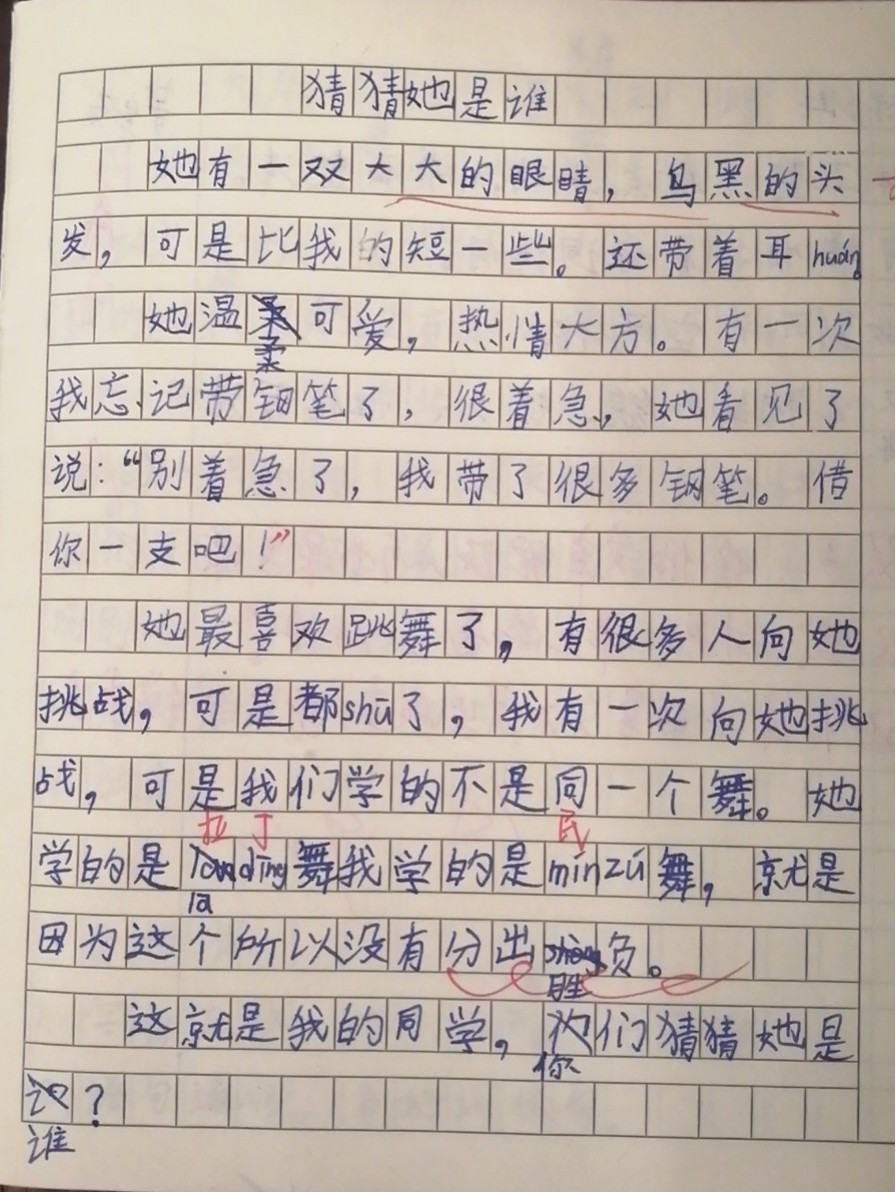 猜猜她是谁
她有一双大大的眼睛，乌黑的头
发，可是比我的短一些。还带着耳huán
她温柔可爱，热情大方。有一次
我忘记带钢笔了，很着急，她看见了
说：“别着急了，我带了很多钢笔。借
你一支吧！”
她最喜欢跳舞了，有很多人向她
挑战，可是都shū了，我有一次向她挑
战，可是我们学的不是同一个舞。她
拉丁 民
学的是lā dīng舞我学的是mín zú舞，就是
因为这个所以没有分出胜负。
这就是我的同学，你们猜猜她是
谁？